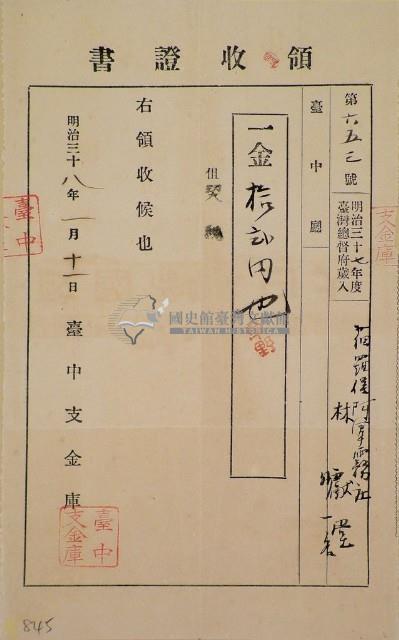 領收證書
第六五三號
明治三十七年度
臺灣總督府歲入
臺中廳
猫羅堡阿罩霧社
林
獻堂
一金拾弍円也
但
右領收候也
明治三十八年一月十一日
臺中支金庫
臺中支金庫
臺中
支金庫
國史館臺灣文獻館
TAIWAN HISTORICA
845